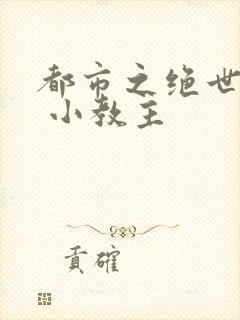 都市之绝世
小教主
貢確